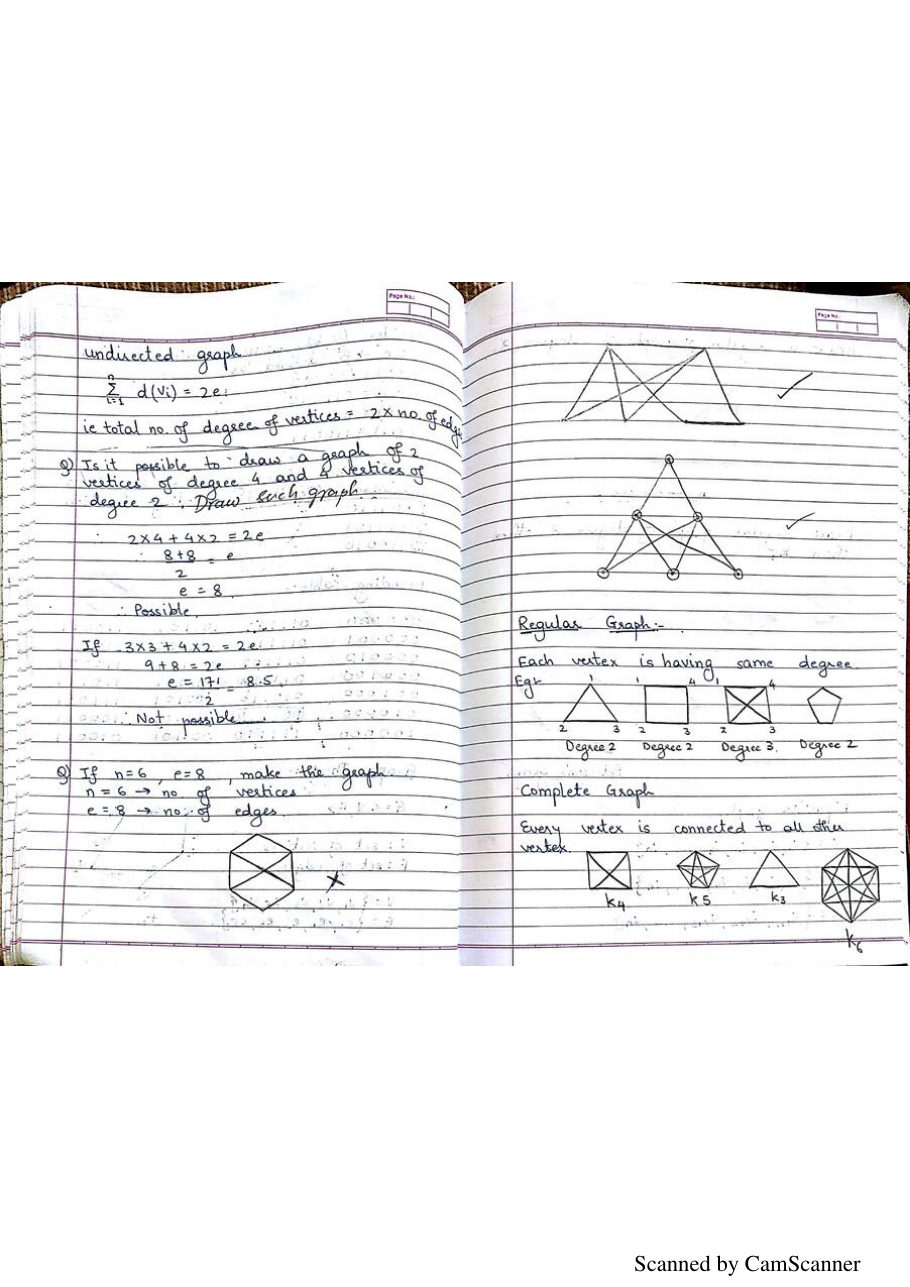 Page No.:
undirected graph
n
Σ d(Vi) = 2e
i=1
ie total no. of degree of vertices = 2 x no. of edge
Q) Is it possible to draw a graph of 2
vertices of degree 4 and 4 vertices of
degree 2. Draw such graph.
2x4 + 4x2 = 2e
8+8 = e
2
e = 8
∴ Possible
If 3x3 + 4x2 = 2e
9+8 = 2e
e = 17 = 8.5
2
∴ Not possible
Q) If n=6, e=8, make the graph
n = 6 → no of vertices
e = 8 → no. of edges
x
Page No.
Regular Graph:-
Each vertex is having same degree.
Eg:-
1 1 4 1 4
2 3 2 3 2 3
Degree 2 Degree 2 Degree 3. Degree 2
Complete Graph
Every vertex is connected to all other
vertex.
K4 K5 K3
K6
Scanned by CamScanner